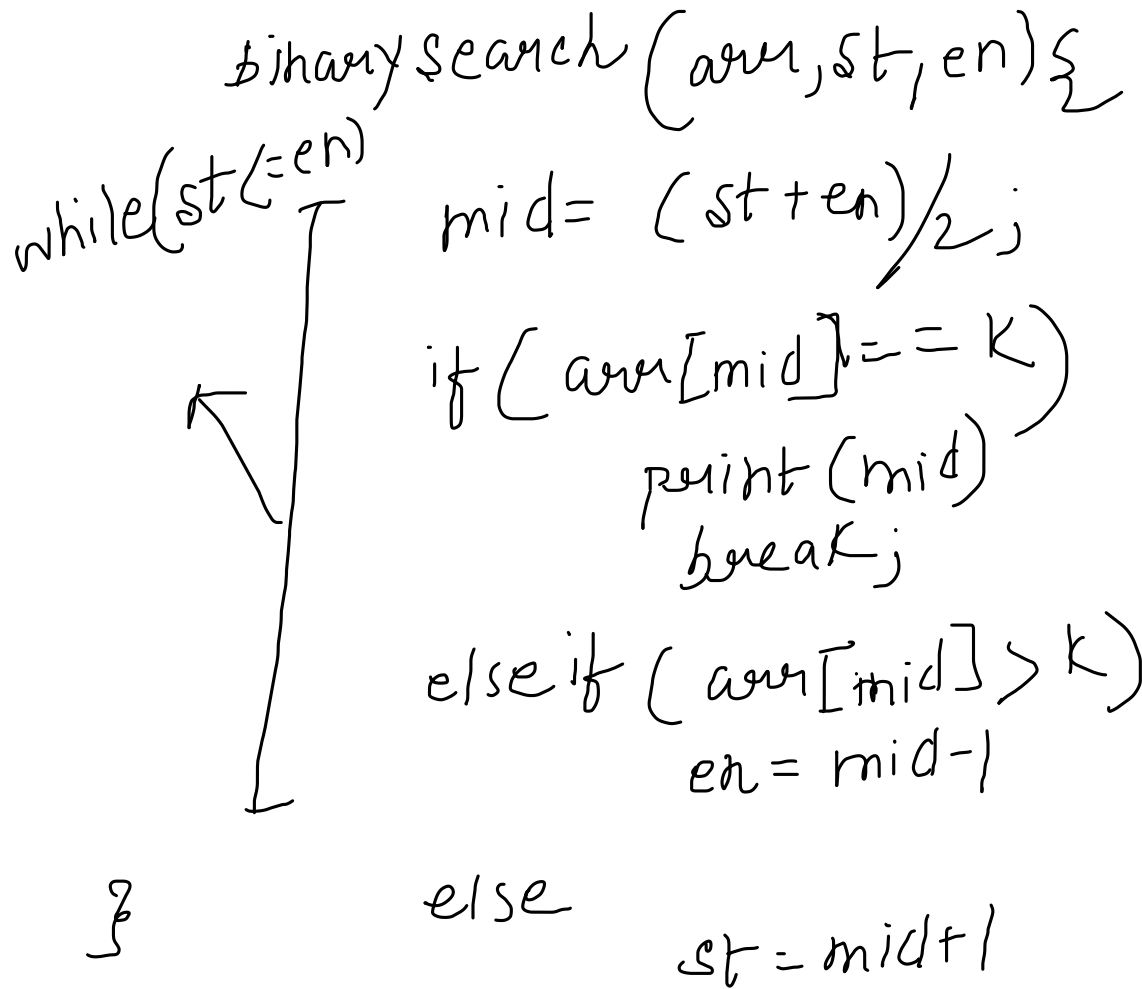 binarysearch (arr, st, en) {
while(st<=en)
mid = (st + en)/2 ;
if ( arr[mid] == K )
print (mid)
break ;
else if ( arr[mid] > K )
en = mid-1
else
st = mid+1
}